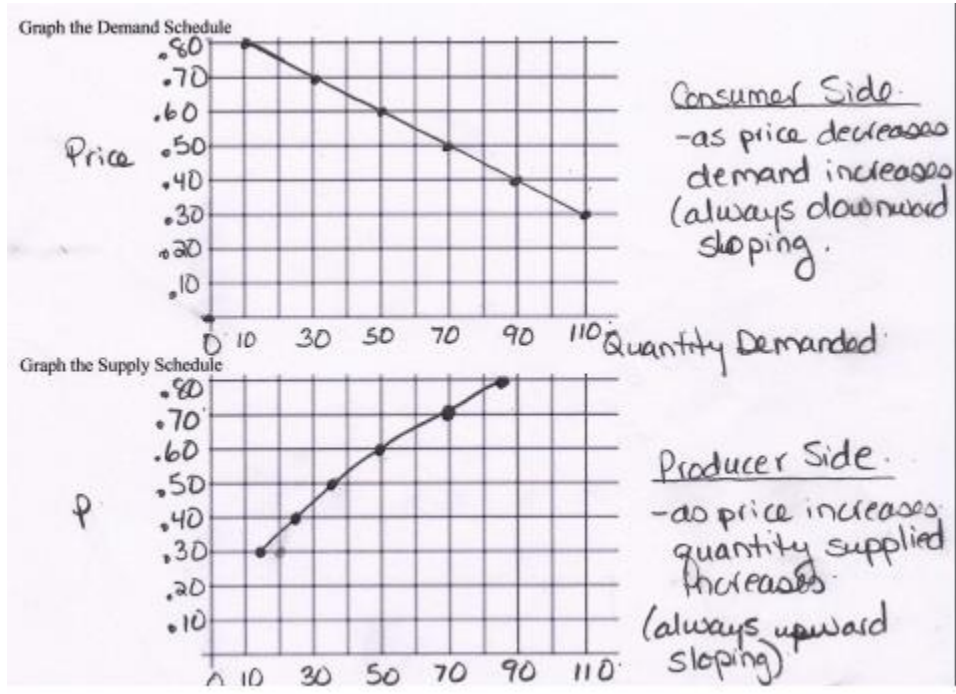 Graph the Demand Schedule
.80
.70
.60
Price .50
.40
.30
.20
.10
0 10 30 50 70 90 110 Quantity Demanded
Consumer Side.
-as price decreases
demand increases
(always downward
sloping.
Graph the Supply Schedule
.80
.70
.60
.50
P .40
.30
.20
.10
0 10 30 50 70 90 110
Producer Side.
-as price increases
quantity supplied
increases.
(always upward
sloping)